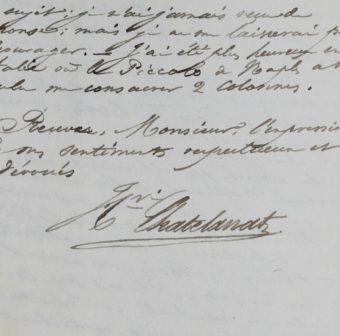 sujet; je n'ai jamais reçu de
ponse; mais je ne me laisserai p
courager. – J'ai été plus heureux en
talie où le Piccolo de Naples a
voulu me consacrer 2 colonnes.
Recevez, Monsieur, l'expressio
de mes sentiments respectueux et
dévoués
Hri Chatelanat